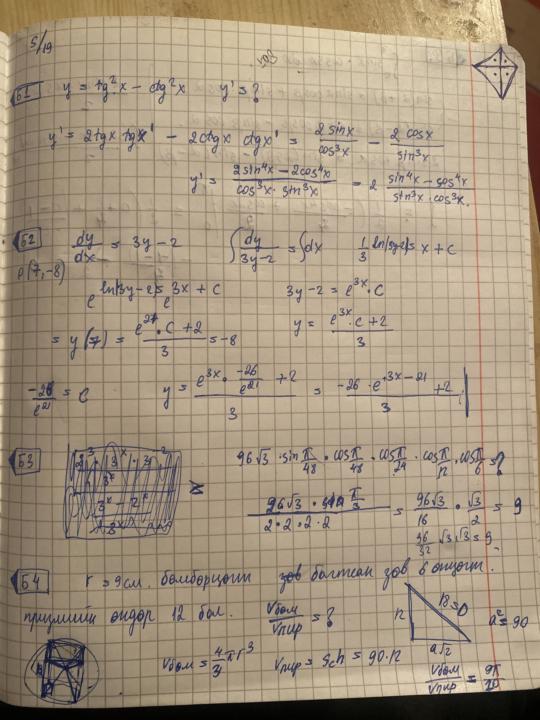 5/19
Б1 y = tg²x - ctg²x y' = ?
y' = 2tgx tgx' - 2ctgx ctgx' = 2sinx/cos³x - 2cosx/sin³x
y' = (2sin⁴x - 2cos⁴x)/(cos³x · sin³x) = 2 (sin⁴x - cos⁴x)/(sin³x · cos³x)
Б2 dy/dx = 3y - 2 ∫dy/(3y-2) = ∫dx 1/3 ln(3y-2) = x + C
P(7,-8)
e^(ln(3y-2)) = e^(3x + C) 3y - 2 = e^(3x) · C
= y(7) = (e^(21) · C + 2)/3 = -8 y = (e^(3x) · C + 2)/3
-26/e²¹ = C y = (e^(3x) · -26/e²¹ + 2)/3 = (-26 · e^(3x-21) + 2)/3
Б3 96√3 · sin π/48 · cos π/48 · cos π/24 · cos π/12 · cos π/6 = ?
(96√3 · sin π/3)/(2·2·2·2) = 96√3/16 · √3/2 = 9
96/32 √3 √3 = 9
Б4 r = 9см. бөмбөрцөгт багтсан зөв 6 өнцөгт.
призмийн өндөр 12 бол. Vбөм/Vпир = ?
12 18 a√2 a² = 90
Vбөм = 4/3 π r³ Vпир = Sсh = 90·12
Vбөм/Vпир = 9π/10